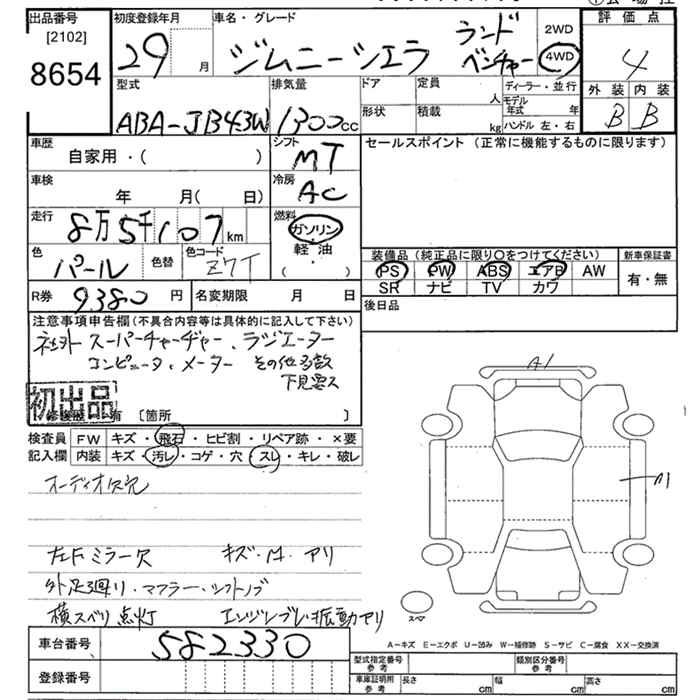 出品番号 [2102] 8654
初度登録年月 29 月
車名・グレード ジムニーシエラ ランドベンチャー
2WD 4WD
評価点 4
外装 内装
B B
型式 ABA-JB43W
排気量 1300cc
ドア 定員 人
形状 積載 kg
ディーラー・並行
モデル年式 年
ハンドル 左・右
車歴 自家用・( )
シフト MT
セールスポイント (正常に機能するものに限ります)
車検 年 月( 日)
冷房 AC
走行 8万5千107km
燃料 ガソリン
軽油
( ・ )
色 パール 色替 色コード Z7T
装備品 (純正品に限り○をつけてください) 新車保証書
PS PW ABS エアB AW
SR ナビ TV カワ
有・無
R券 9380円 名変期限 月 日
後日品
注意事項申告欄(不具合内容等は具体的に記入して下さい)
社外 スーパーチャーヂャー、ラジエーター
コンピュータ、メーター その他多数
下見要ス
初出品
修復歴 有 〔箇所 〕
検査員 FW キズ・飛石・ヒビ割・リペア跡・×要
記入欄 内装 キズ・汚レ・コゲ・穴・スレ・キレ・破レ
オーディオ欠
左F ミラー欠 キズ・凹 アリ
外足廻り・マフラー・シフトノブ
横スベリ点灯 エンジンブレ・振動アリ
A1
A1
スペア
車台番号 582330
登録番号
A-キズ E-エクボ U-凹み W-補修跡 S-サビ C-腐食 XX-交換済
型式指定番号 参考 類別区分番号 参考
車庫証明用 参考 長さ cm 幅 cm 高さ cm